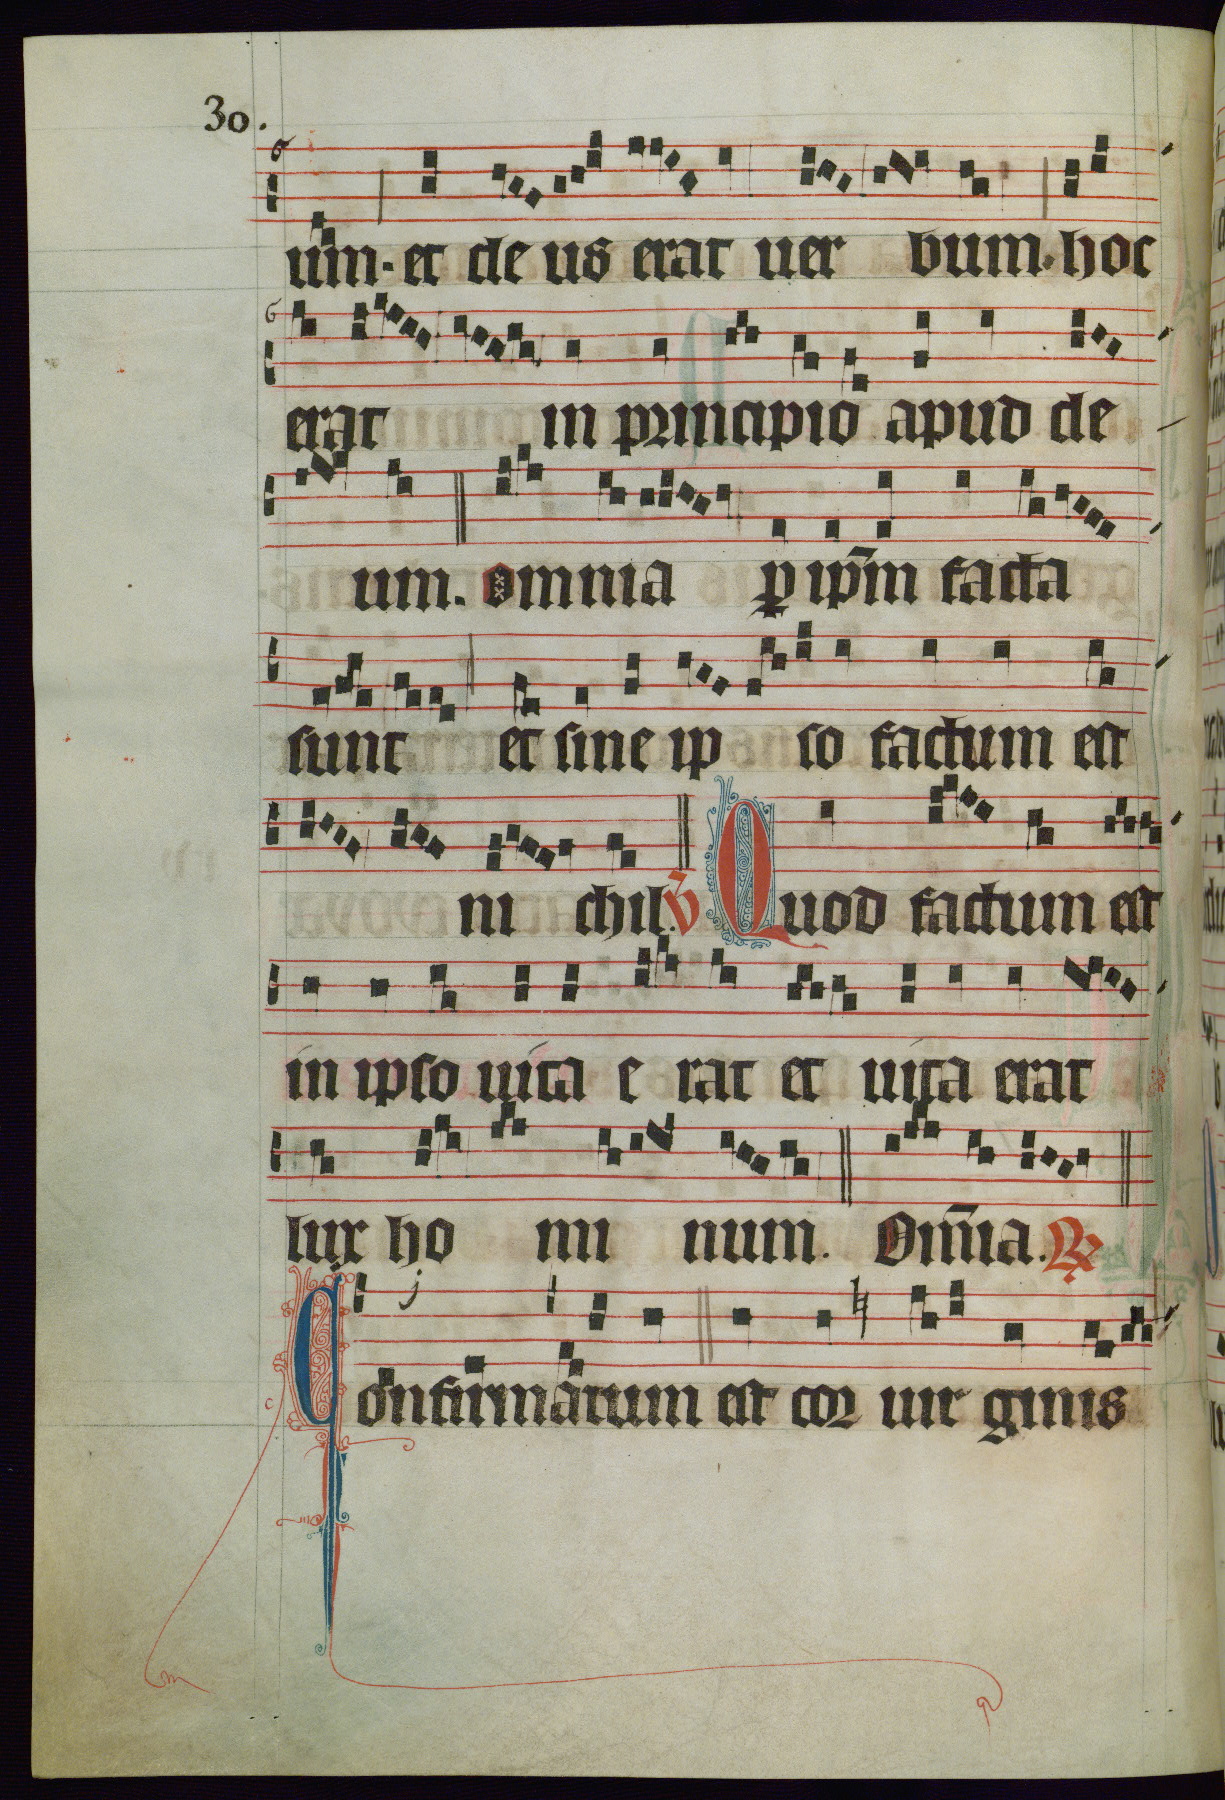 30.
um· et de us erat uer bum· hoc
erat in principio apud de
um. omnia p̲ ip̄m facta
sunt et sine ip so factum est
ni chil. V̄ Quod factum est
in ipso uita e rat et uita erat
lux ho mi num. Om̄ia. ℟
Confirmatum est cor uir ginis